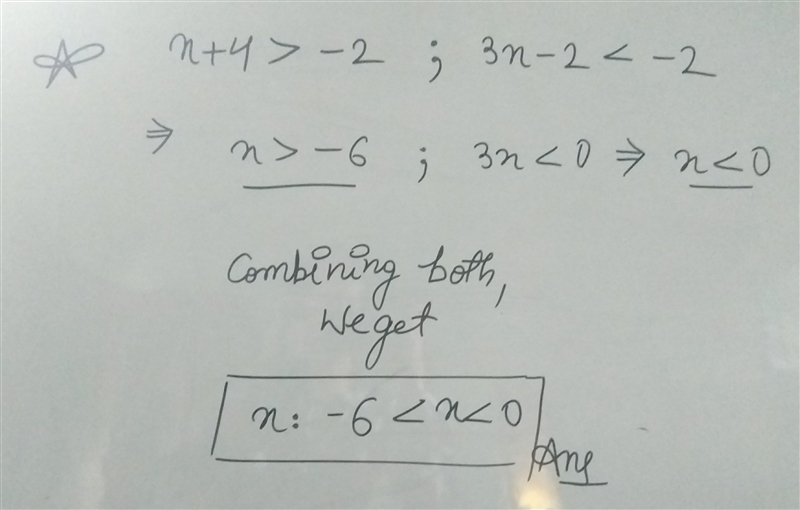 ☆ n+4 > -2 ; 3n-2 < -2
⇒ n > -6 ; 3n < 0 ⇒ n < 0
Combining both,
We get
n: -6 < n < 0
Ans